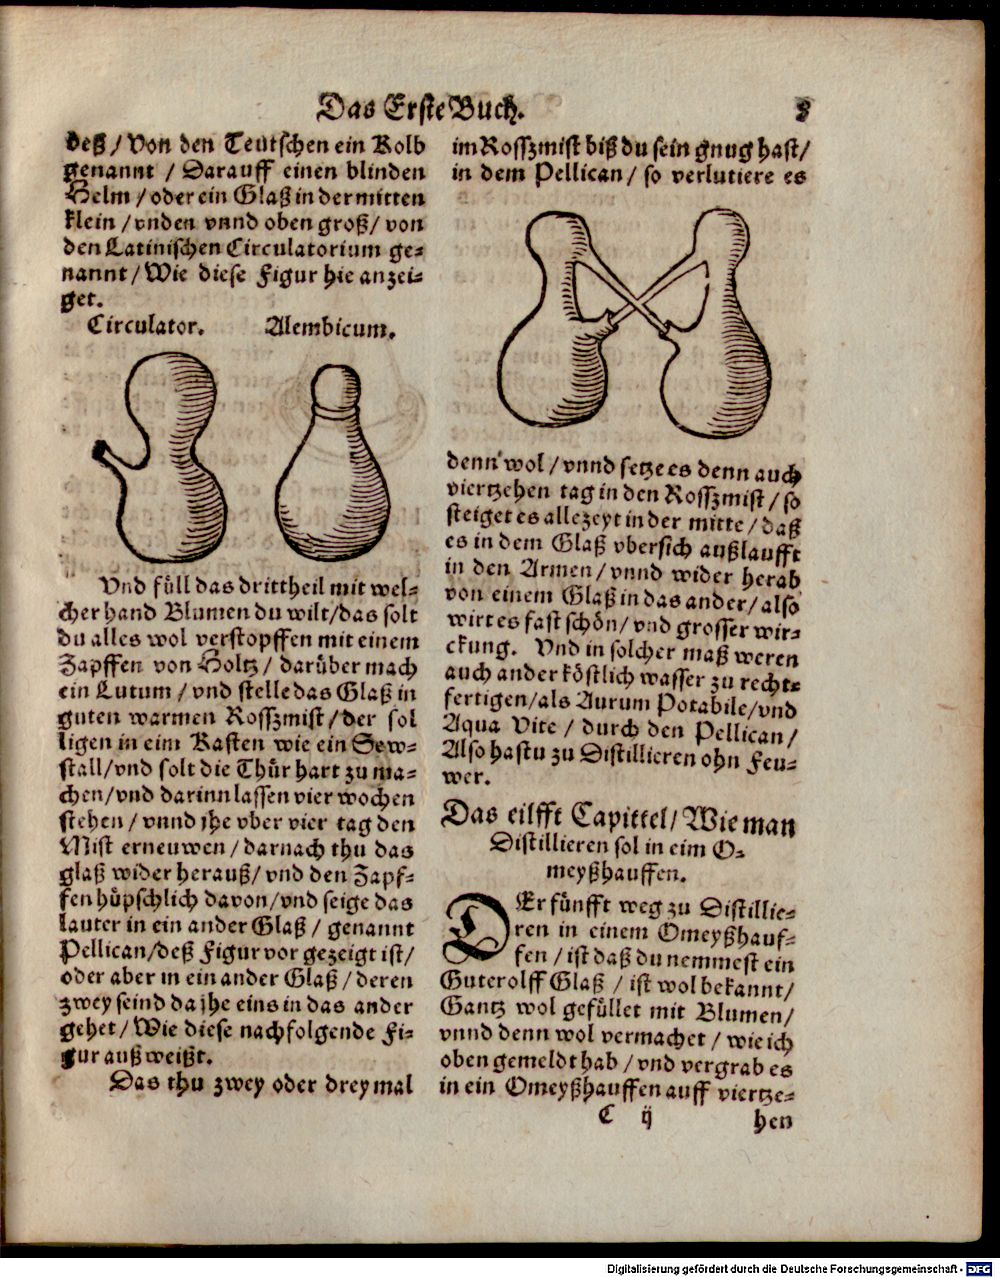 Das Erste Buch. 8
deß / Von den Teutschen ein Kolb
genannt / Darauff einen blinden
Helm / oder ein Glaß in der mitten
klein / vnden vnnd oben groß / von
den Latinischen Circulatorium ge-
nannt / Wie diese Figur hie anzei-
get.
Circulator. Alembicum.
Vnd füll das drittheil mit wel-
cher hand Blumen du wilt / das solt
du alles wol verstopffen mit einem
Zapffen von Holtz / darüber mach
ein Lutum / vnd stelle das Glaß in
guten warmen Rosszmist / der sol
ligen in eim Kasten wie ein Sew-
stall / vnd solt die Thür hart zu ma-
chen / vnd darinn lassen vier wochen
stehen / vnnd jhe vber vier tag den
Mist erneuwen / darnach thu das
glaß wider herauß / vnd den Zapf-
fen hüpschlich davon / vnd seige das
lauter in ein ander Glaß / genannt
Pellican / deß Figur vor gezeigt ist /
oder aber in ein ander Glaß / deren
zwey seind da jhe eins in das ander
gehet / Wie diese nachfolgende Fi-
gur außweißt.
Das thu zwey oder drey mal
im Rosszmist biß du sein gnug hast /
in dem Pellican / so verlutiere es
denn wol / vnnd setze es denn auch
viertzehen tag in den Rosszmist / so
steiget es allezeyt in der mitte / daß
es in dem Glaß vbersich außlaufft
in den Armen / vnnd wider herab
von einem Glaß in das ander / also
wirt es fast schön / vnd grosser wir-
ckung. Vnd in solcher maß weren
auch ander köstlich wasser zu recht-
fertigen / als Aurum Potabile / vnd
Aqua Vite / durch den Pellican /
Also hastu zu Distillieren ohn Feu-
wer.
Das eilfft Capittel / Wie man
Distillieren sol in eim O-
meyßhauffen.
DEr fünfft weg zu Distillie-
ren in einem Omeyßhauf-
fen / ist daß du nemmest ein
Guterolff Glaß / ist wol bekannt /
Gantz wol gefüllet mit Blumen /
vnnd denn wol vermachet / wie ich
oben gemeldt hab / vnd vergrab es
in ein Omeyßhauffen auff viertze-
C ij hen
Digitalisierung gefördert durch die Deutsche Forschungsgemeinschaft - DFG